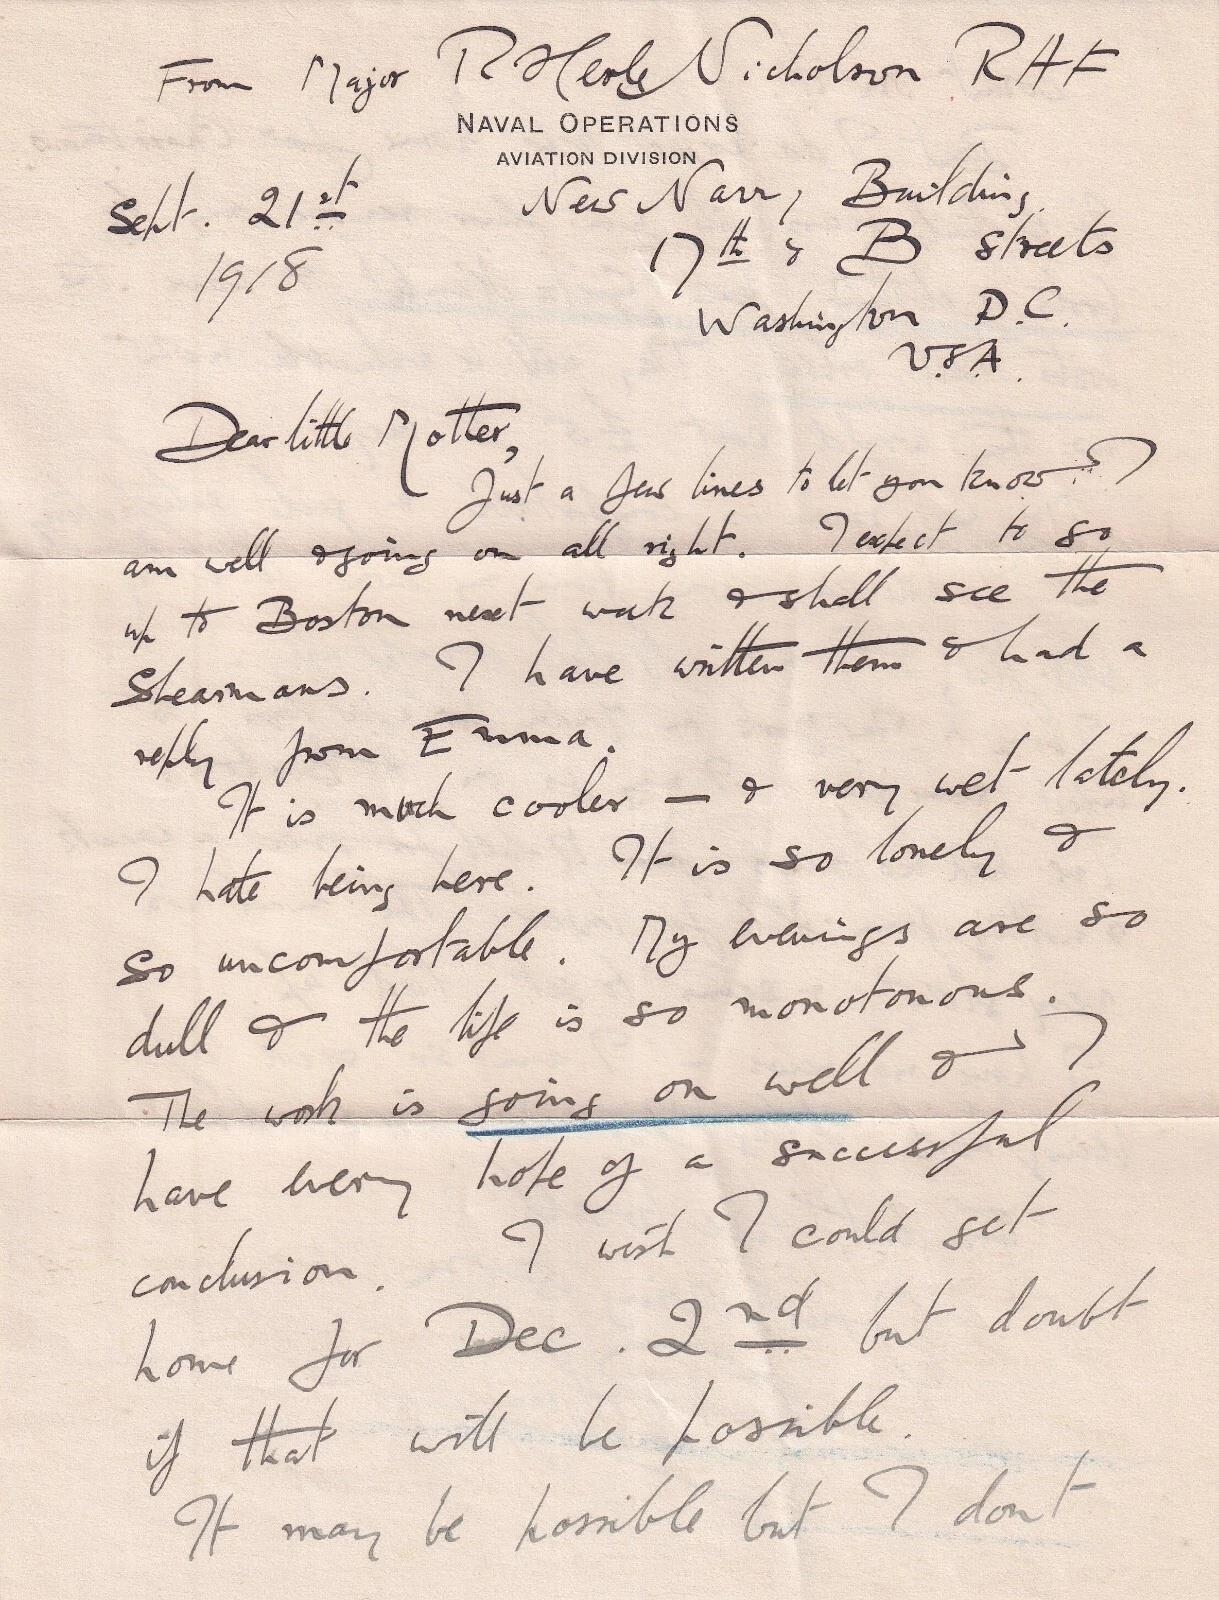 From Major R Herle Nicholson RAF
NAVAL OPERATIONS
AVIATION DIVISION
Sept. 21st
1918
New Navy Building,
17th & B Streets
Washington D.C.
U.S.A.
Dear little Mother,
Just a few lines to let you know I
am well & going on all right. I expect to go
up to Boston next week & shall see the
Shearmans. I have written them & had a
reply from Emma.
It is much cooler — & very wet lately.
I hate being here. It is so lonely &
so uncomfortable. My evenings are so
dull & the life is so monotonous.
The work is going on well & I
have every hope of a successful
conclusion. I wish I could get
home for Dec. 2nd but doubt
if that will be possible.
It may be possible but I dont